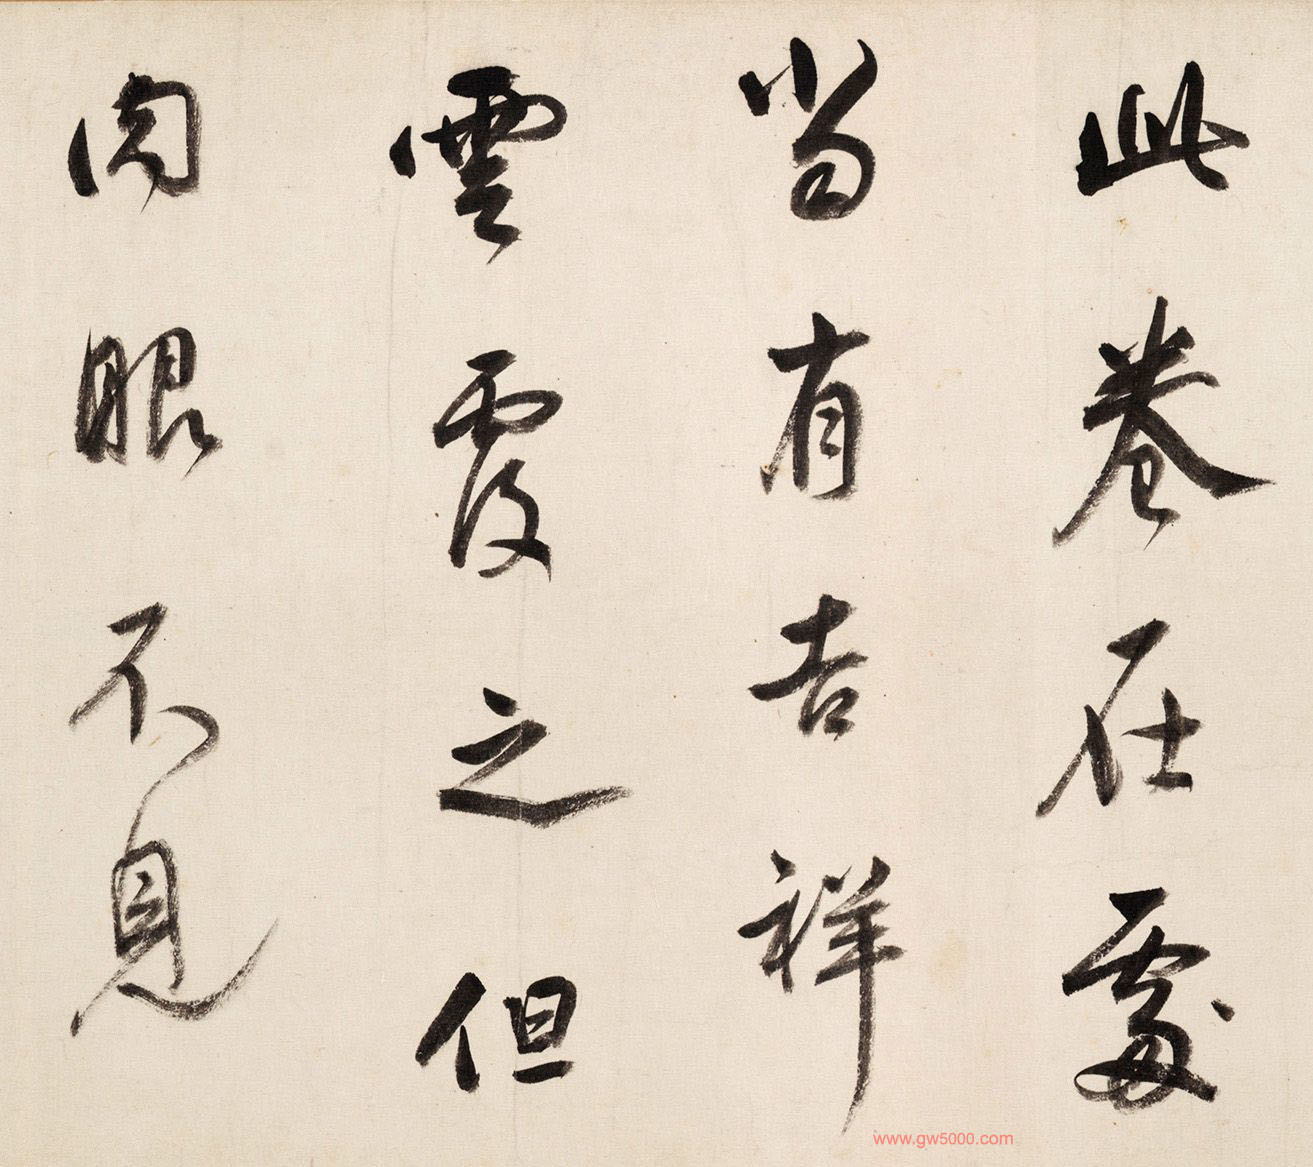 此卷在處
當有吉祥
雲覆之但
肉眼不見
www.gw5000.com